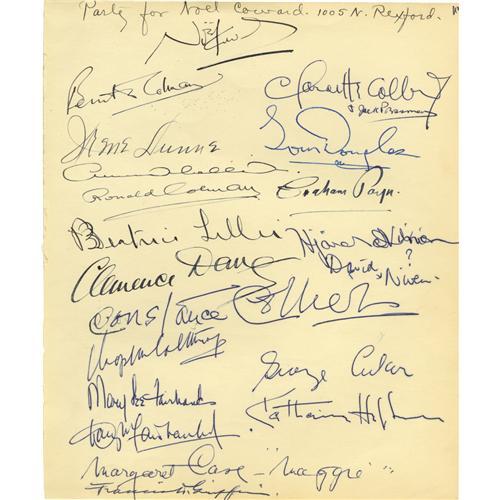 Party for Noël Coward. 1005 N. Rexford.
Noël Coward
Benita Colman
Claudette Colbert
& Jack Pressman
Irene Dunne
Ronald Colman
Graham Payn.
Beatrice Lillie
Clemence Dane
David Niven
?
Constance Collier
George Cukor
Mary Lee Fairbanks
Katharine Hepburn
Fairbanks
Margaret Case - "Maggie"
Francis Griffin